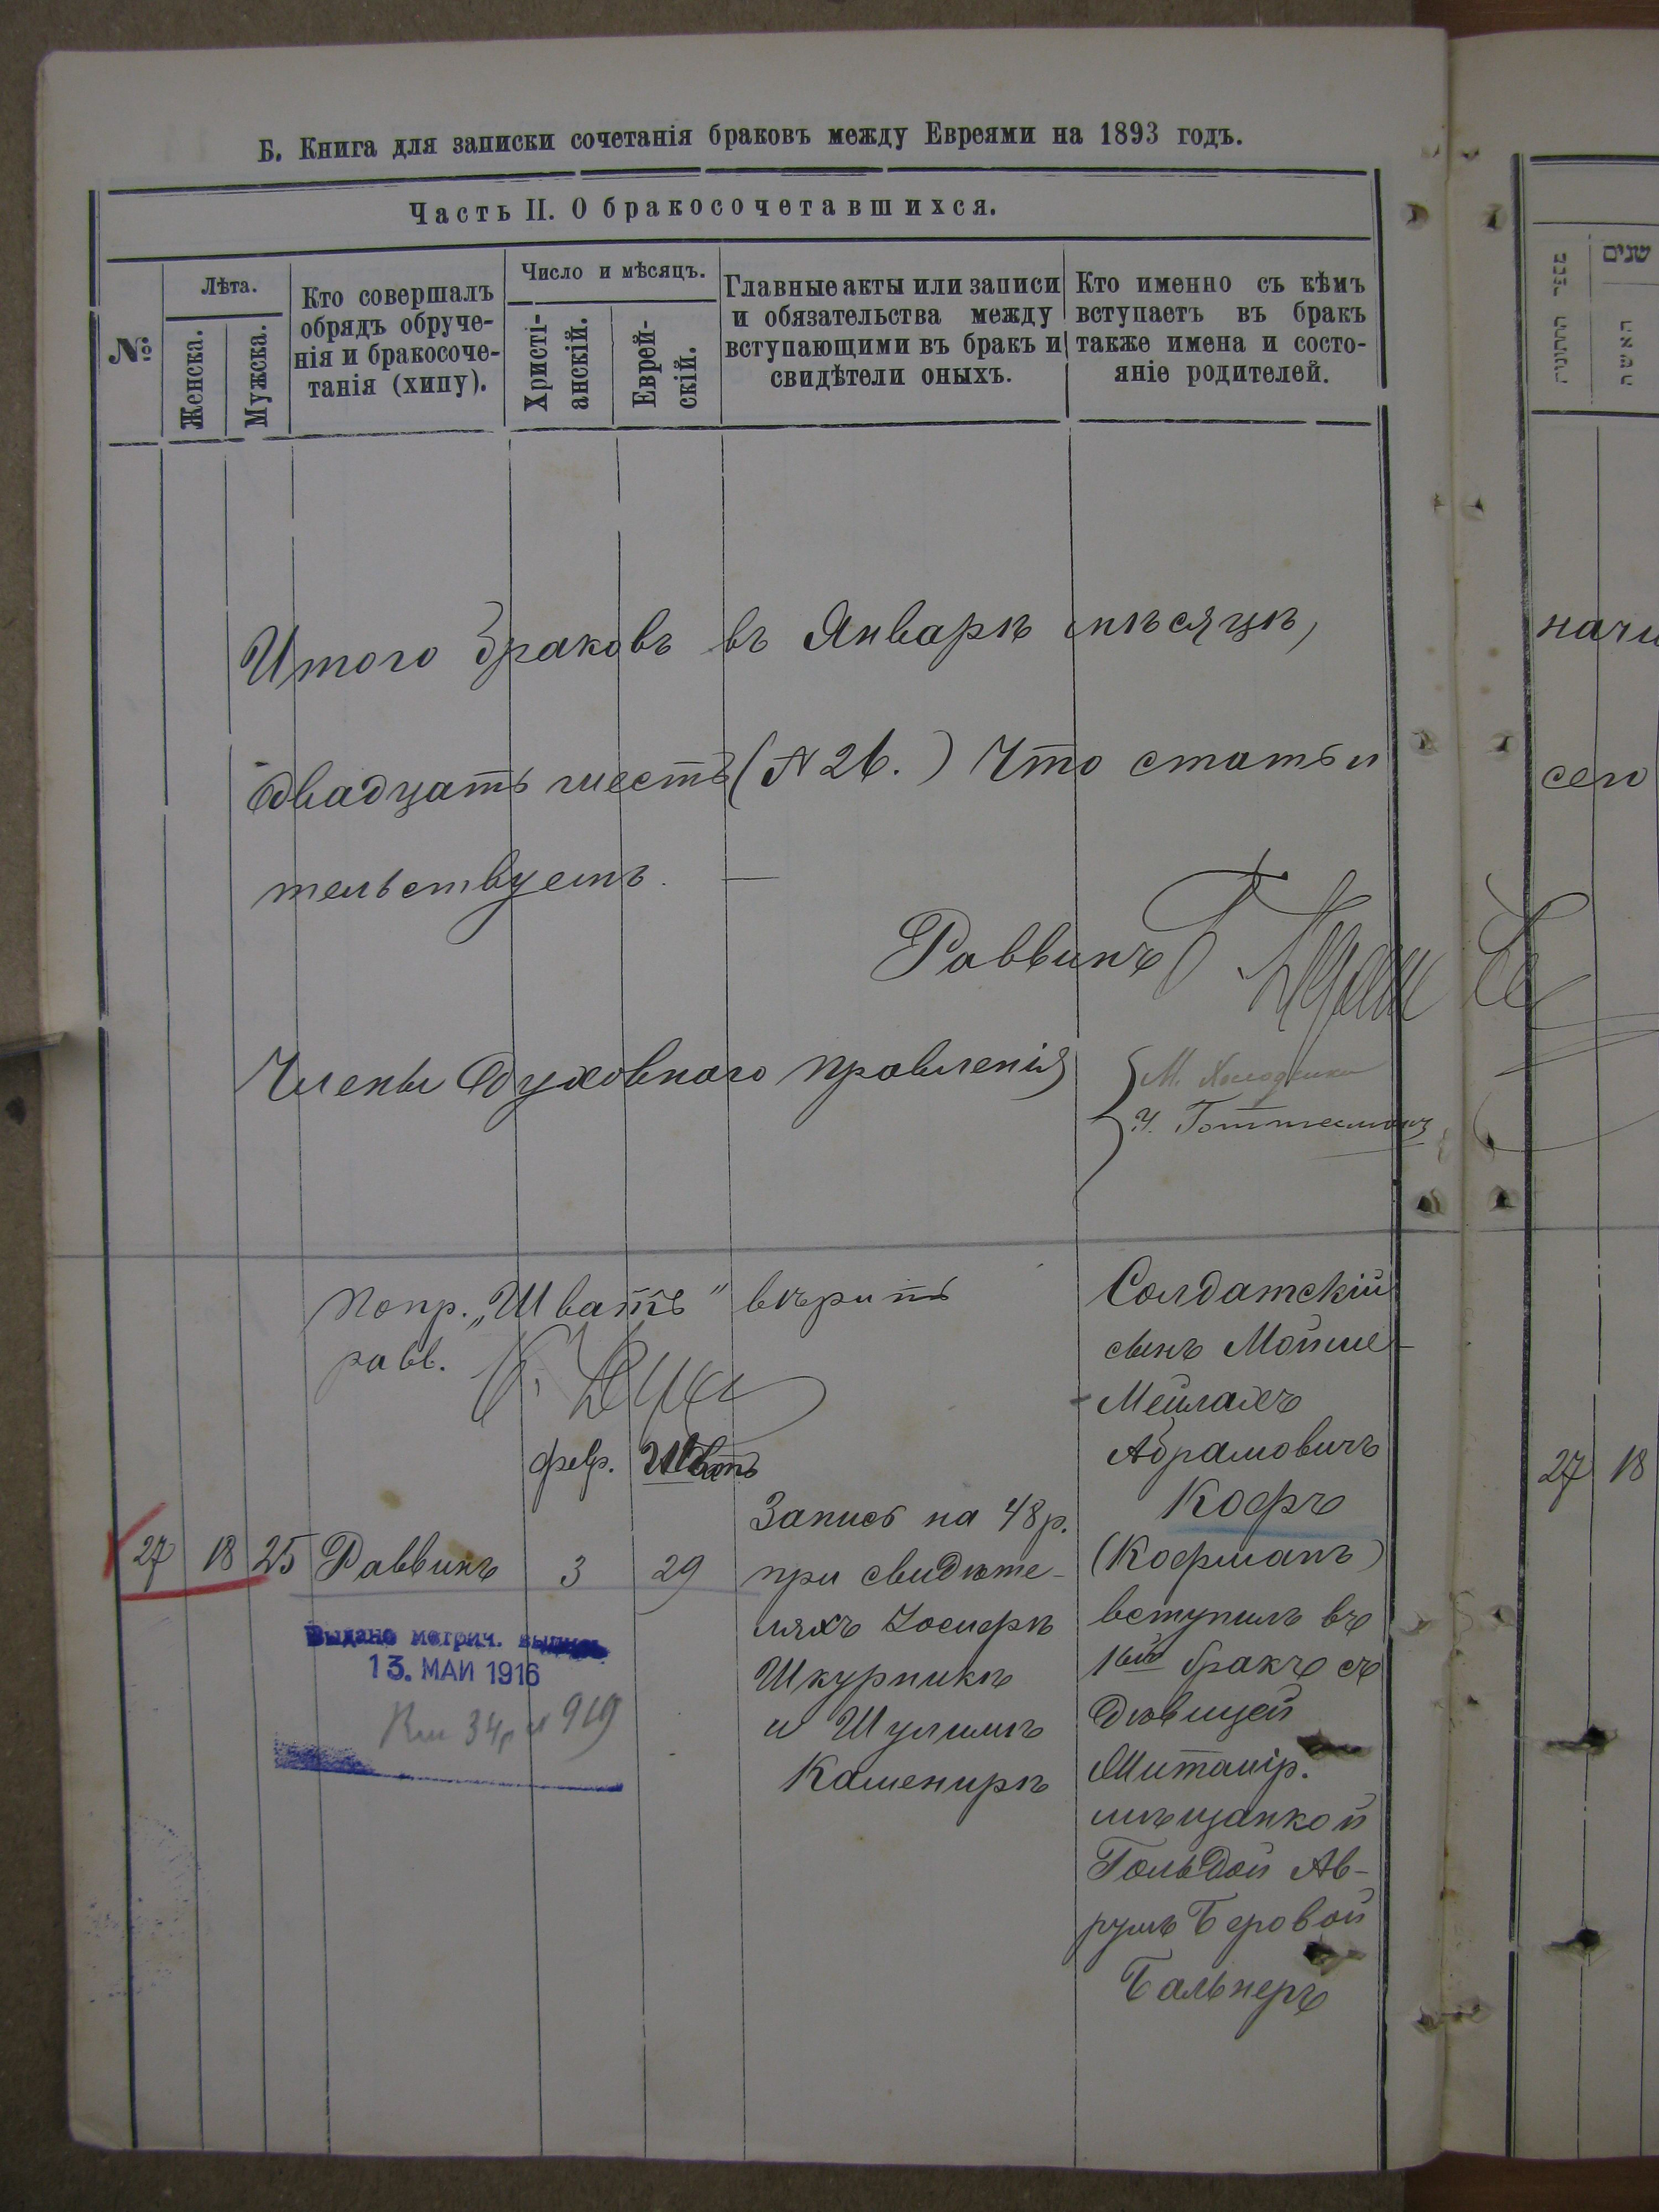 Б. Книга для записки сочетанія браковъ между Евреями на 1893 годъ.
Часть II. О бракосочетавшихся.
№
Лѣта.
Женска.
Мужска.
Кто совершалъ
обрядъ обруче-
нія и бракосоче-
танія (хипу).
Число и мѣсяцъ.
Христі-
анскій.
Еврей-
скій.
Главные акты или записи
и обязательства между
вступающими въ бракъ и
свидѣтели оныхъ.
Кто именно съ кѣмъ
вступаетъ въ бракъ
также имена и состо-
яніе родителей.
שנים
האשה
Итого браковъ въ Январѣ мѣсяцѣ,
двадцать шесть (№ 26.) Что статьи
тельствуемъ. —
Раввинъ
Члены Духовнаго Правленія
М.
Ч. Готтесманъ
попр. „Шватъ" вѣрить
равв.
февр. Шватъ
27 18 25 Раввинъ 3 29
Запись на 48 р.
при свидѣте-
ляхъ Іосифѣ
Шкурникѣ
и Шулимѣ
Каменирѣ
Солдатскій
сынъ Мойше-
Мейлахъ
Абрамовичъ
Кофъ
(Кофманъ)
вступилъ въ
1ый бракъ съ
дѣвицей
мѣщанкой
Гольдой Ав-
румъ Беровой
Бальнеръ
Выдано метрич. выпись
13. МАИ 1916
начи
сего
27 18